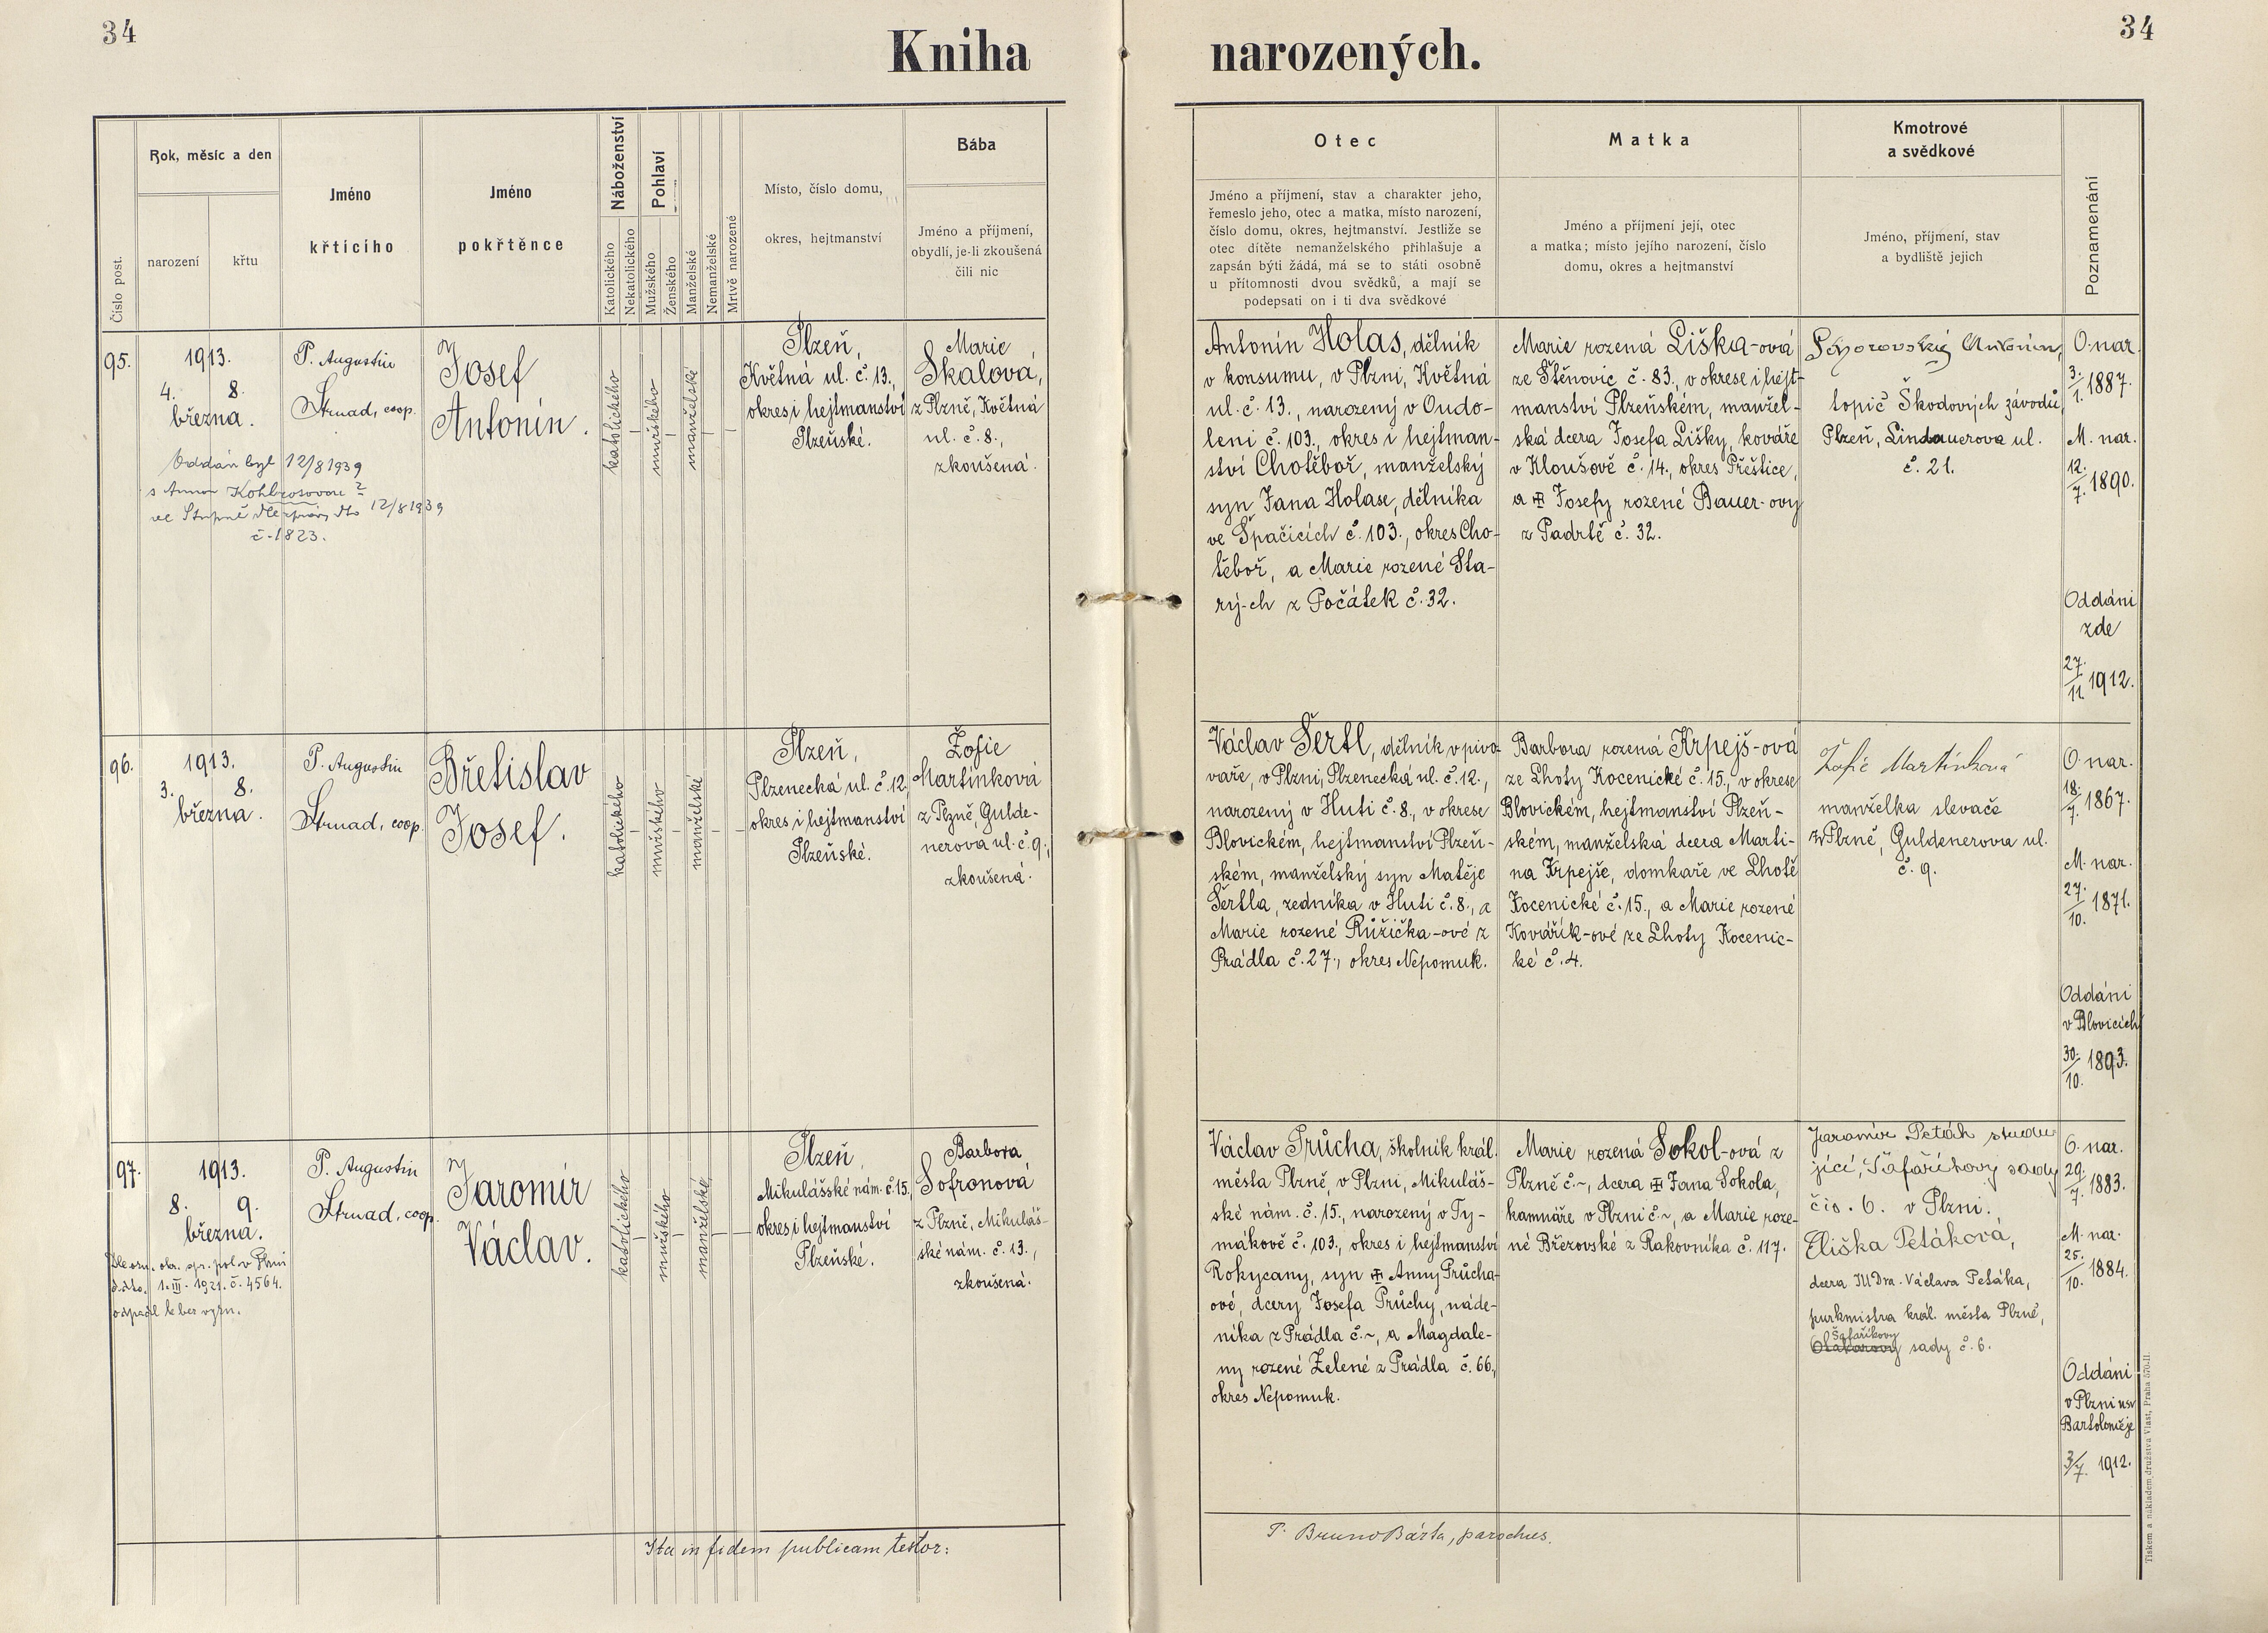 34
34
Kniha narozených.
Číslo post.
Rok, měsíc a den
narození
křtu
Jméno
křtícího
Jméno
pokřtěnce
Náboženství
Katolického
Nekatolického
Pohlaví
Mužského
Ženského
Manželské
Nemanželské
Mrtvě narozené
Místo, číslo domu,
okres, hejtmanství
Bába
Jméno a příjmení,
obydlí, je-li zkoušená
čili nic
Otec
Jméno a příjmení, stav a charakter jeho,
řemeslo jeho, otec a matka, místo narození,
číslo domu, okres, hejtmanství. Jestliže se
otec dítěte nemanželského přihlašuje a
zapsán býti žádá, má se to státi osobně
u přítomnosti dvou svědků, a mají se
podepsati on i ti dva svědkové
Matka
Jméno a příjmení její, otec
a matka; místo jejího narození, číslo
domu, okres a hejtmanství
Kmotrové
a svědkové
Jméno, příjmení, stav
a bydliště jejich
Poznamenání
95.
1913.
4. 8.
března.
Oddán byl 12/8 1939
s Annou
ve
12/8 1939
č. 1823.
P. Augustin
Strnad, coop.
Josef
Antonín.
katolického
mužského
manželské
Plzeň,
Květná ul. č. 13.,
okres i hejtmanství
Plzeňské.
Marie
Skalová,
z Plzně, Květná
ul. č. 8.,
zkoušená.
Antonín Holas, dělník
v konsumu, v Plzni, Květná
ul. č. 13., narozený v Oudo-
leni č. 103., okres i hejtman-
ství Chotěboř, manželský
syn Jana Holase, dělníka
ve Špačicích č. 103., okres Cho-
těboř, a Marie rozené Sta-
rý-ch z Počátek č. 32.
Marie rozená Liška-ová
ze Štěnovic č. 83., v okrese i hejt-
manství Plzeňském, manžel-
ská dcera Josefa Lišky, kováře
v Kloušově č. 14., okres Přeštice,
a Josefy rozené Bauer-ovy
z Padrtě č. 32.
Antonín,
topič Škodových závodů,
Plzeň, Lindauerova ul.
č. 21.
O. nar.
3./1. 1887.
M. nar.
12./7. 1890.
Oddáni
zde
27./11. 1912.
96.
1913.
3. 8.
března.
P. Augustin
Strnad, coop.
Břetislav
Josef.
katolického
mužského
manželské
Plzeň,
Plzenecká ul. č. 12.
okres i hejtmanství
Plzeňské.
Žofie
Martínková
z Plzně, Gulde-
nerova ul. č. 9.,
zkoušená.
Václav Šertl, dělník v pivo-
vaře, v Plzni, Plzenecká ul. č. 12.,
narozený v Huti č. 8., v okrese
Blovickém, hejtmanství Plzeň-
ském, manželský syn Matěje
Šertla, zedníka v Huti č. 8., a
Marie rozené Růžička-ové z
Prádla č. 27., okres Nepomuk.
Barbora rozená Krpejš-ová
ze Lhoty Kocenické č. 15., v okrese
Blovickém, hejtmanství Plzeň-
ském, manželská dcera Marti-
na Krpejše, domkaře ve Lhotě
Kocenické č. 15., a Marie rozené
Kovářík-ové ze Lhoty Kocenic-
ké č. 4.
Žofie Martínková
manželka slevače
v Plzně, Guldenerova ul.
č. 9.
O. nar.
18./7. 1867.
M. nar.
27./10. 1871.
Oddáni
v Blovicích
30./10. 1893.
97.
1913.
8. 9.
března.
Dle ozn. okr. spr. pol. v Plzni
ddto. 1. III. 1921. č. 4564.
odpadl k bez vyzn.
P. Augustin
Strnad, coop.
Jaromír
Václav.
katolického
mužského
manželské
Plzeň,
Mikulášské nám. č. 15.
okres i hejtmanství
Plzeňské.
Barbora
Sofronová
z Plzně, Mikuláš-
ské nám. č. 13.,
zkoušená.
Václav Průcha, školník král.
města Plzně, v Plzni, Mikuláš-
ské nám. č. 15., narozený v Ty-
mákově č. 103., okres i hejtmanství
Rokycany, syn Anny Průcha-
ové, dcery Josefa Průchy, náde-
níka z Prádla č. ~, a Magdale-
ny rozené Zelené z Prádla č. 66.,
okres Nepomuk.
Marie rozená Sokol-ová z
Plzně č. ~, dcera Jana Sokola,
kamnáře v Plzni č. ~, a Marie roze-
né Březovské z Rakovníka č. 117.
Jaromír Peták studu-
jící, Šafaříkovy sady
čís. 6. v Plzni.
Eliška Petáková,
dcera JUDra. Václava Petáka,
purkmistra král. města Plzně,
Šafaříkovy
Otakarovy sady č. 6.
O. nar.
29./7. 1883.
M. nar.
25./10. 1884.
Oddáni
v Plzni u sv.
Bartoloměje
3/7. 1912.
Ita in fidem publicam testor:
P. Bruno Bárta, parochus.
Tiskem a nákladem družstva Vlast, Praha 570-II.